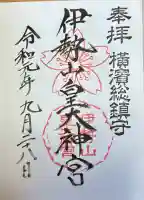 奉拝
横濱総鎮守
伊勢山皇大神宮
令和元年九月二十八日